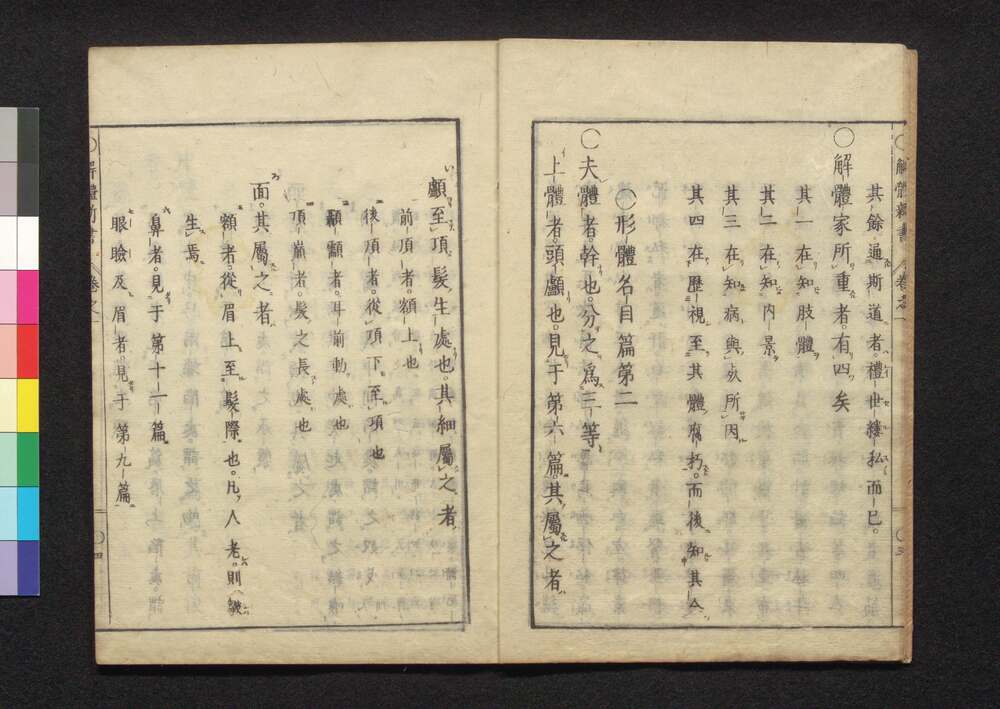 解體新書 卷之一 〇三
其餘通斯道者禮世縷私而已。
〇解體家所重者有四矣
其一在知肢體
其二在知内景
其三在知病與疚所因
其四在歷視至其體腐朽。而後知其人
〇形體名目篇第二
〇夫體者。幹也。分之為三等。
上體者。頭顱也。見于第六篇。其屬之者
顱至頂髮生處也。其細屬之者
前頂者。額上也
後頂者。從頂下至項也
顳顬者。耳前動處也
頂顖者。髮之長處也
面。其屬之者
額者。從眉上至髮際也。凡人老。則皺
生焉。
鼻者。見于第十一篇
眼瞼及眉者。見于第九篇
〇解體新書 卷之一 〇四